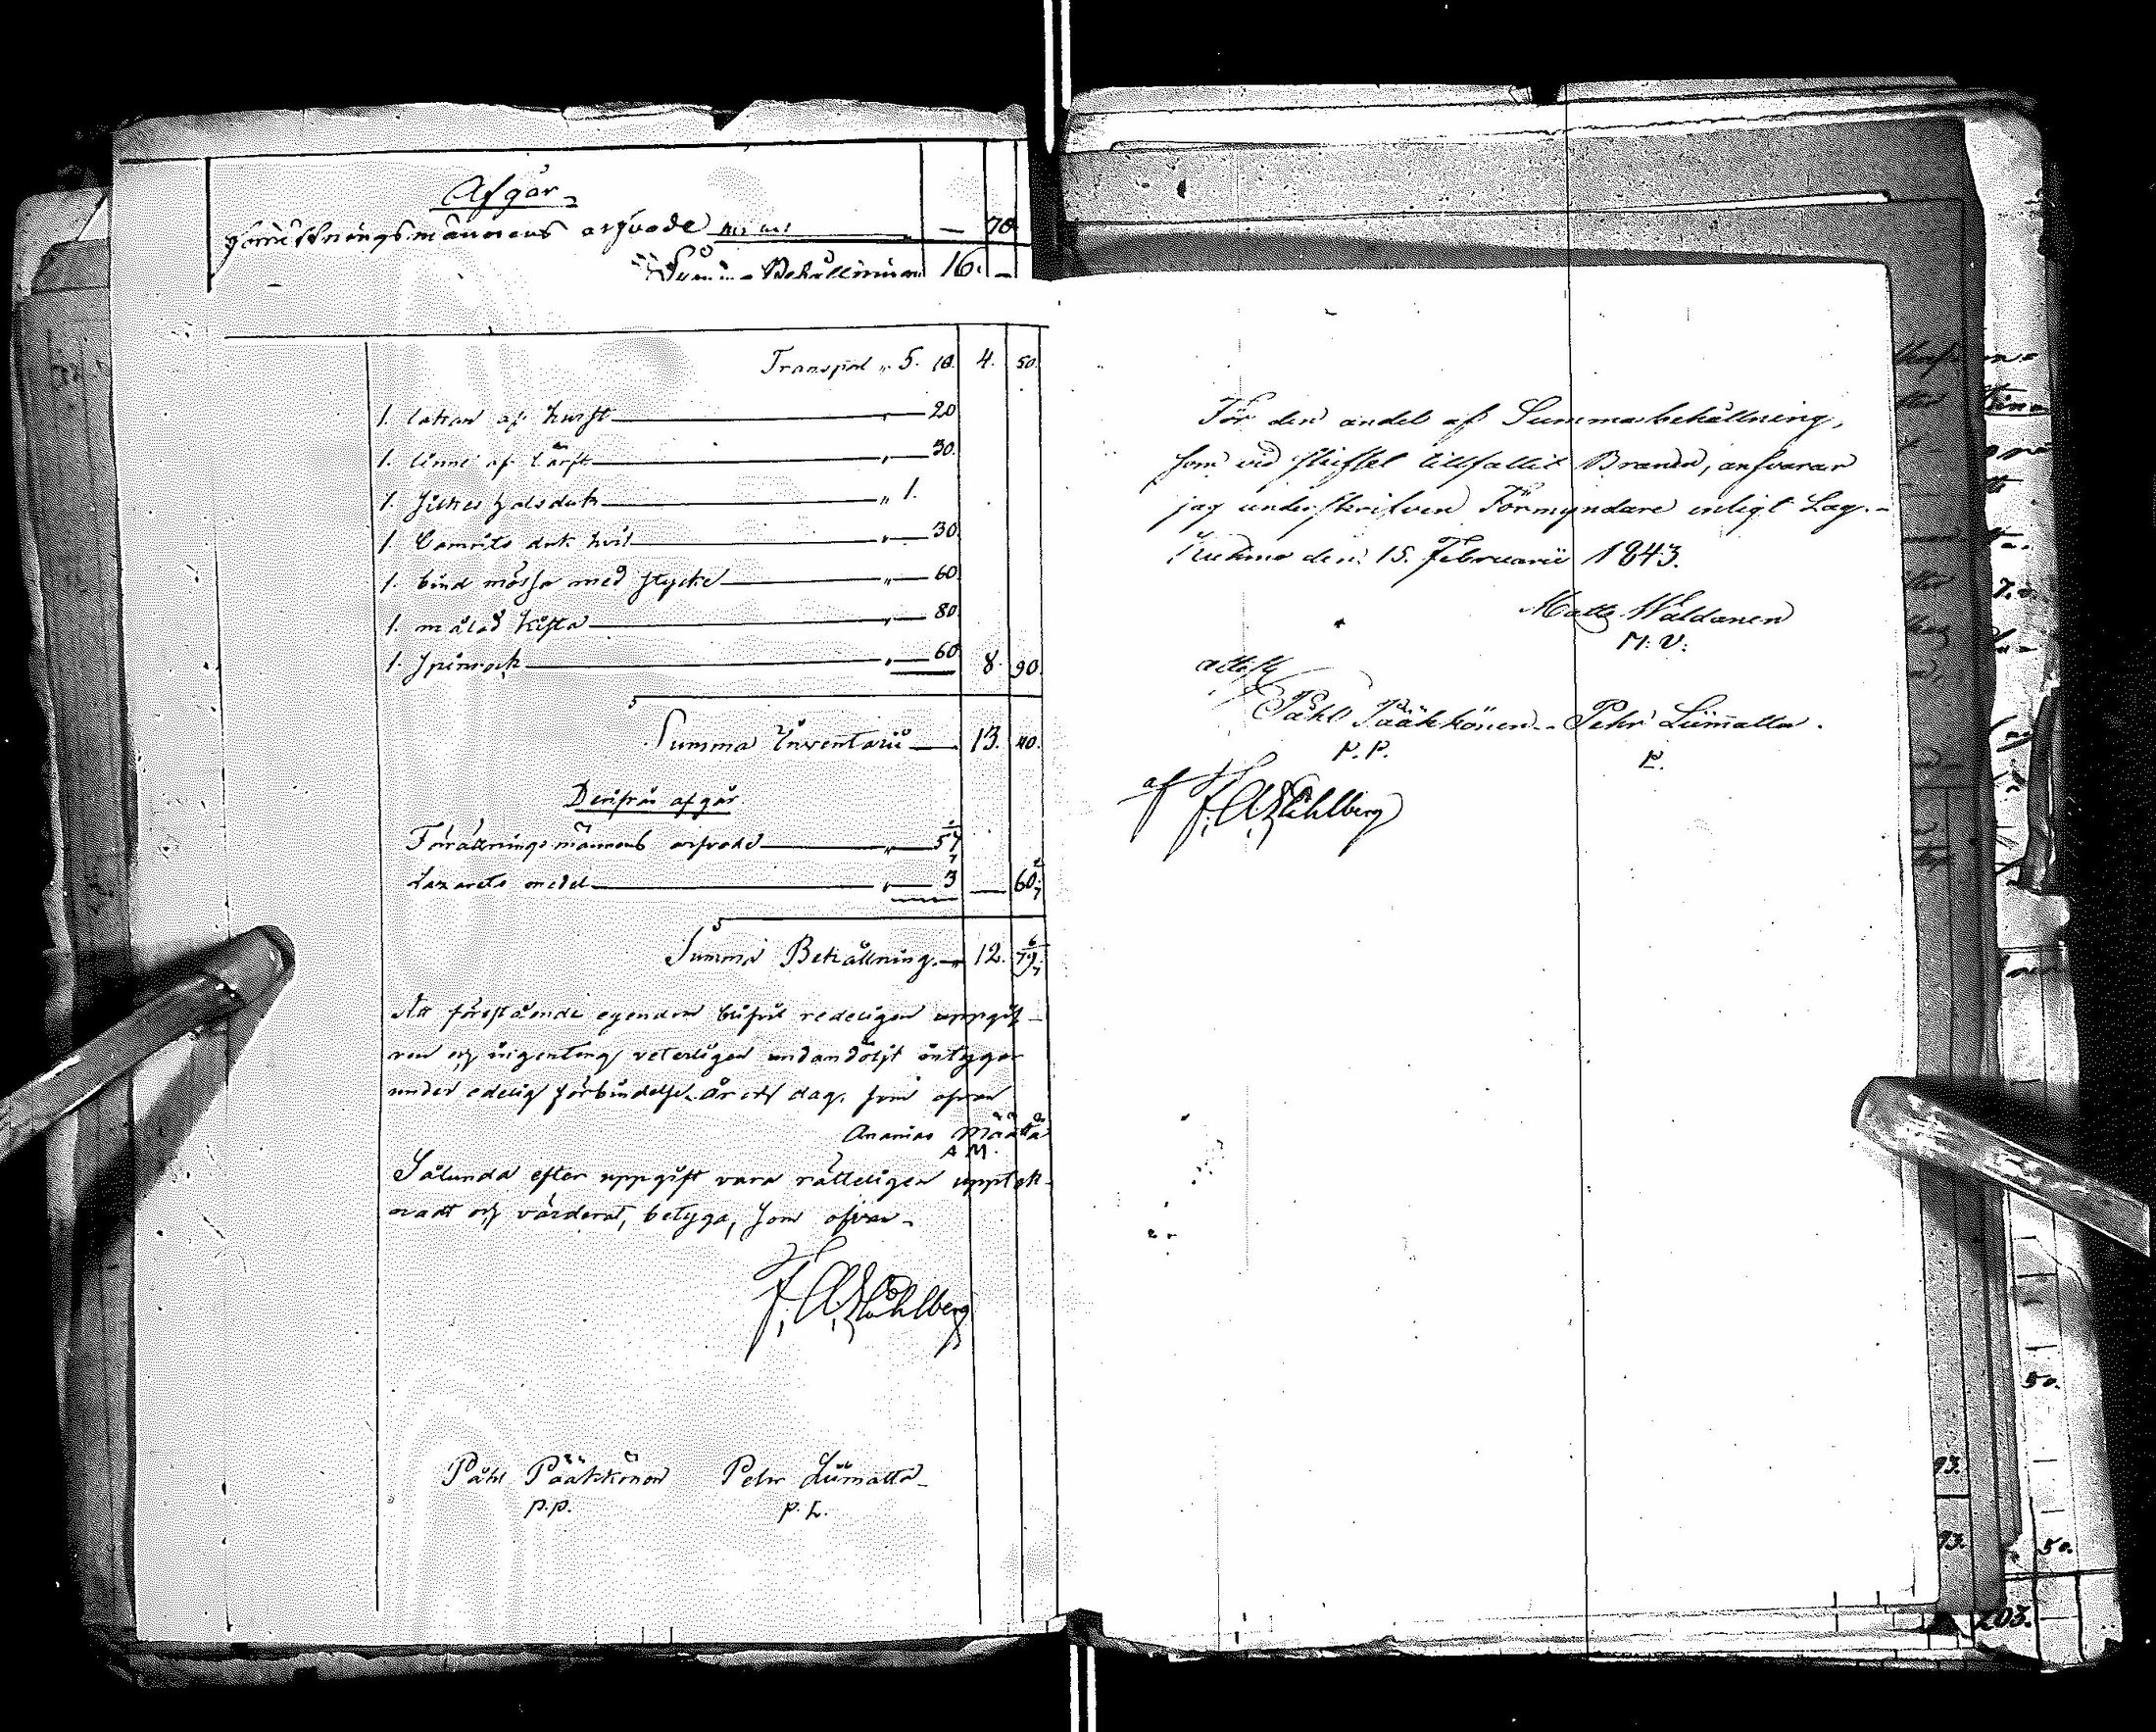 Afgår
Förrättningsmännens arfvode — 70
Summa Behållning 16. —
Transport „ 5. 10. 4. 50.
1. lakan af hurst „ — 20
1. linne af lärft „ — 30.
1. Silkes halsduk „ 1.
1. Camrits duk hvit „ — 30.
1. bind mössa med stycke „ — 60
1. målad kista „ — 80.
1. Spinrock „ — 60 8. 90.
Summa Inventarii 13. 40.
Derifrån afgår.
Förrättningsmännens arfvode „ — 57
Lazarets medel „ — 3 — 60
Summa Behållning. „ 12. 79
Att förestående egendom blifvit redeligen uppgif-
ven och ingenting veterligen undandöljt intygar
under edelig förbindelse. År och dag, som ofvan
Ananias Määttä
A M.
Sålunda efter uppgift vara rätteligen upptek-
nadt och värderat, betyga, som ofvan.
F. A. Ståhlberg
Påhl Pääkkönen Pehr Liimatta
P.P. P. L.
För den andel af Summa behållning,
som vid skiftet tillfallit Brand, ansvarar
jag underskrifven Förmyndare enligt Lag.-
Kuhmo den 15. Februarii 1843.
Matts Wäldanen
M. V.
attest
Påhl Pääkkönen.- Pehr Liimatta.
P.P. P.
af F. A. Ståhlberg
93.
93.
50.
50.
203.